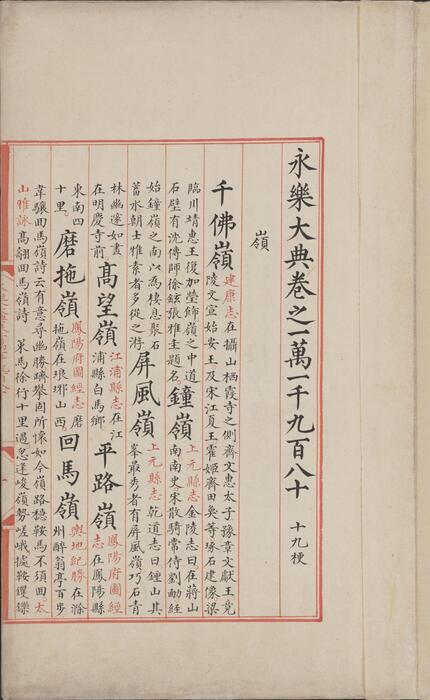 永樂大典卷之一萬一千九百八十 十九梗
嶺
千佛嶺
建康志在攝山栖霞寺之側齊文惠太子豫章文獻王竟
陵文宣始安王及宋江夏王霍姬齊田奐等琢石建像梁
臨川靖惠王復加瑩飾嶺之中道
石壁有沈傳師徐鉉張雅圭題名
鐘嶺
上元縣志金陵志曰在蔣山
南南史宋散騎常侍劉勔經
始鐘嶺之南以為棲息聚石
蓄水朝士雅素者多從之游
屏風嶺
上元縣志乾道志曰鍾山其
峯最秀者有屏風嶺巧石青
林幽邃如畫
在明慶寺前
高望嶺
江浦縣志在江
浦縣白馬鄉
平路嶺
鳳陽府圖經
志在鳳陽縣
東南四
十里
磨拖嶺
鳳陽府圖經志磨
拖嶺在琅琊山西
回馬嶺
輿地紀勝在滁
州醉翁亭百步
韋驤回馬嶺詩云有意尋幽勝躋攀固所懷如今嶺路穩鞍馬不須回太
山雅詠高翻回馬嶺詩 策馬徐行十里過忽逢峻嶺勢嵯峨據鞍矍鑠